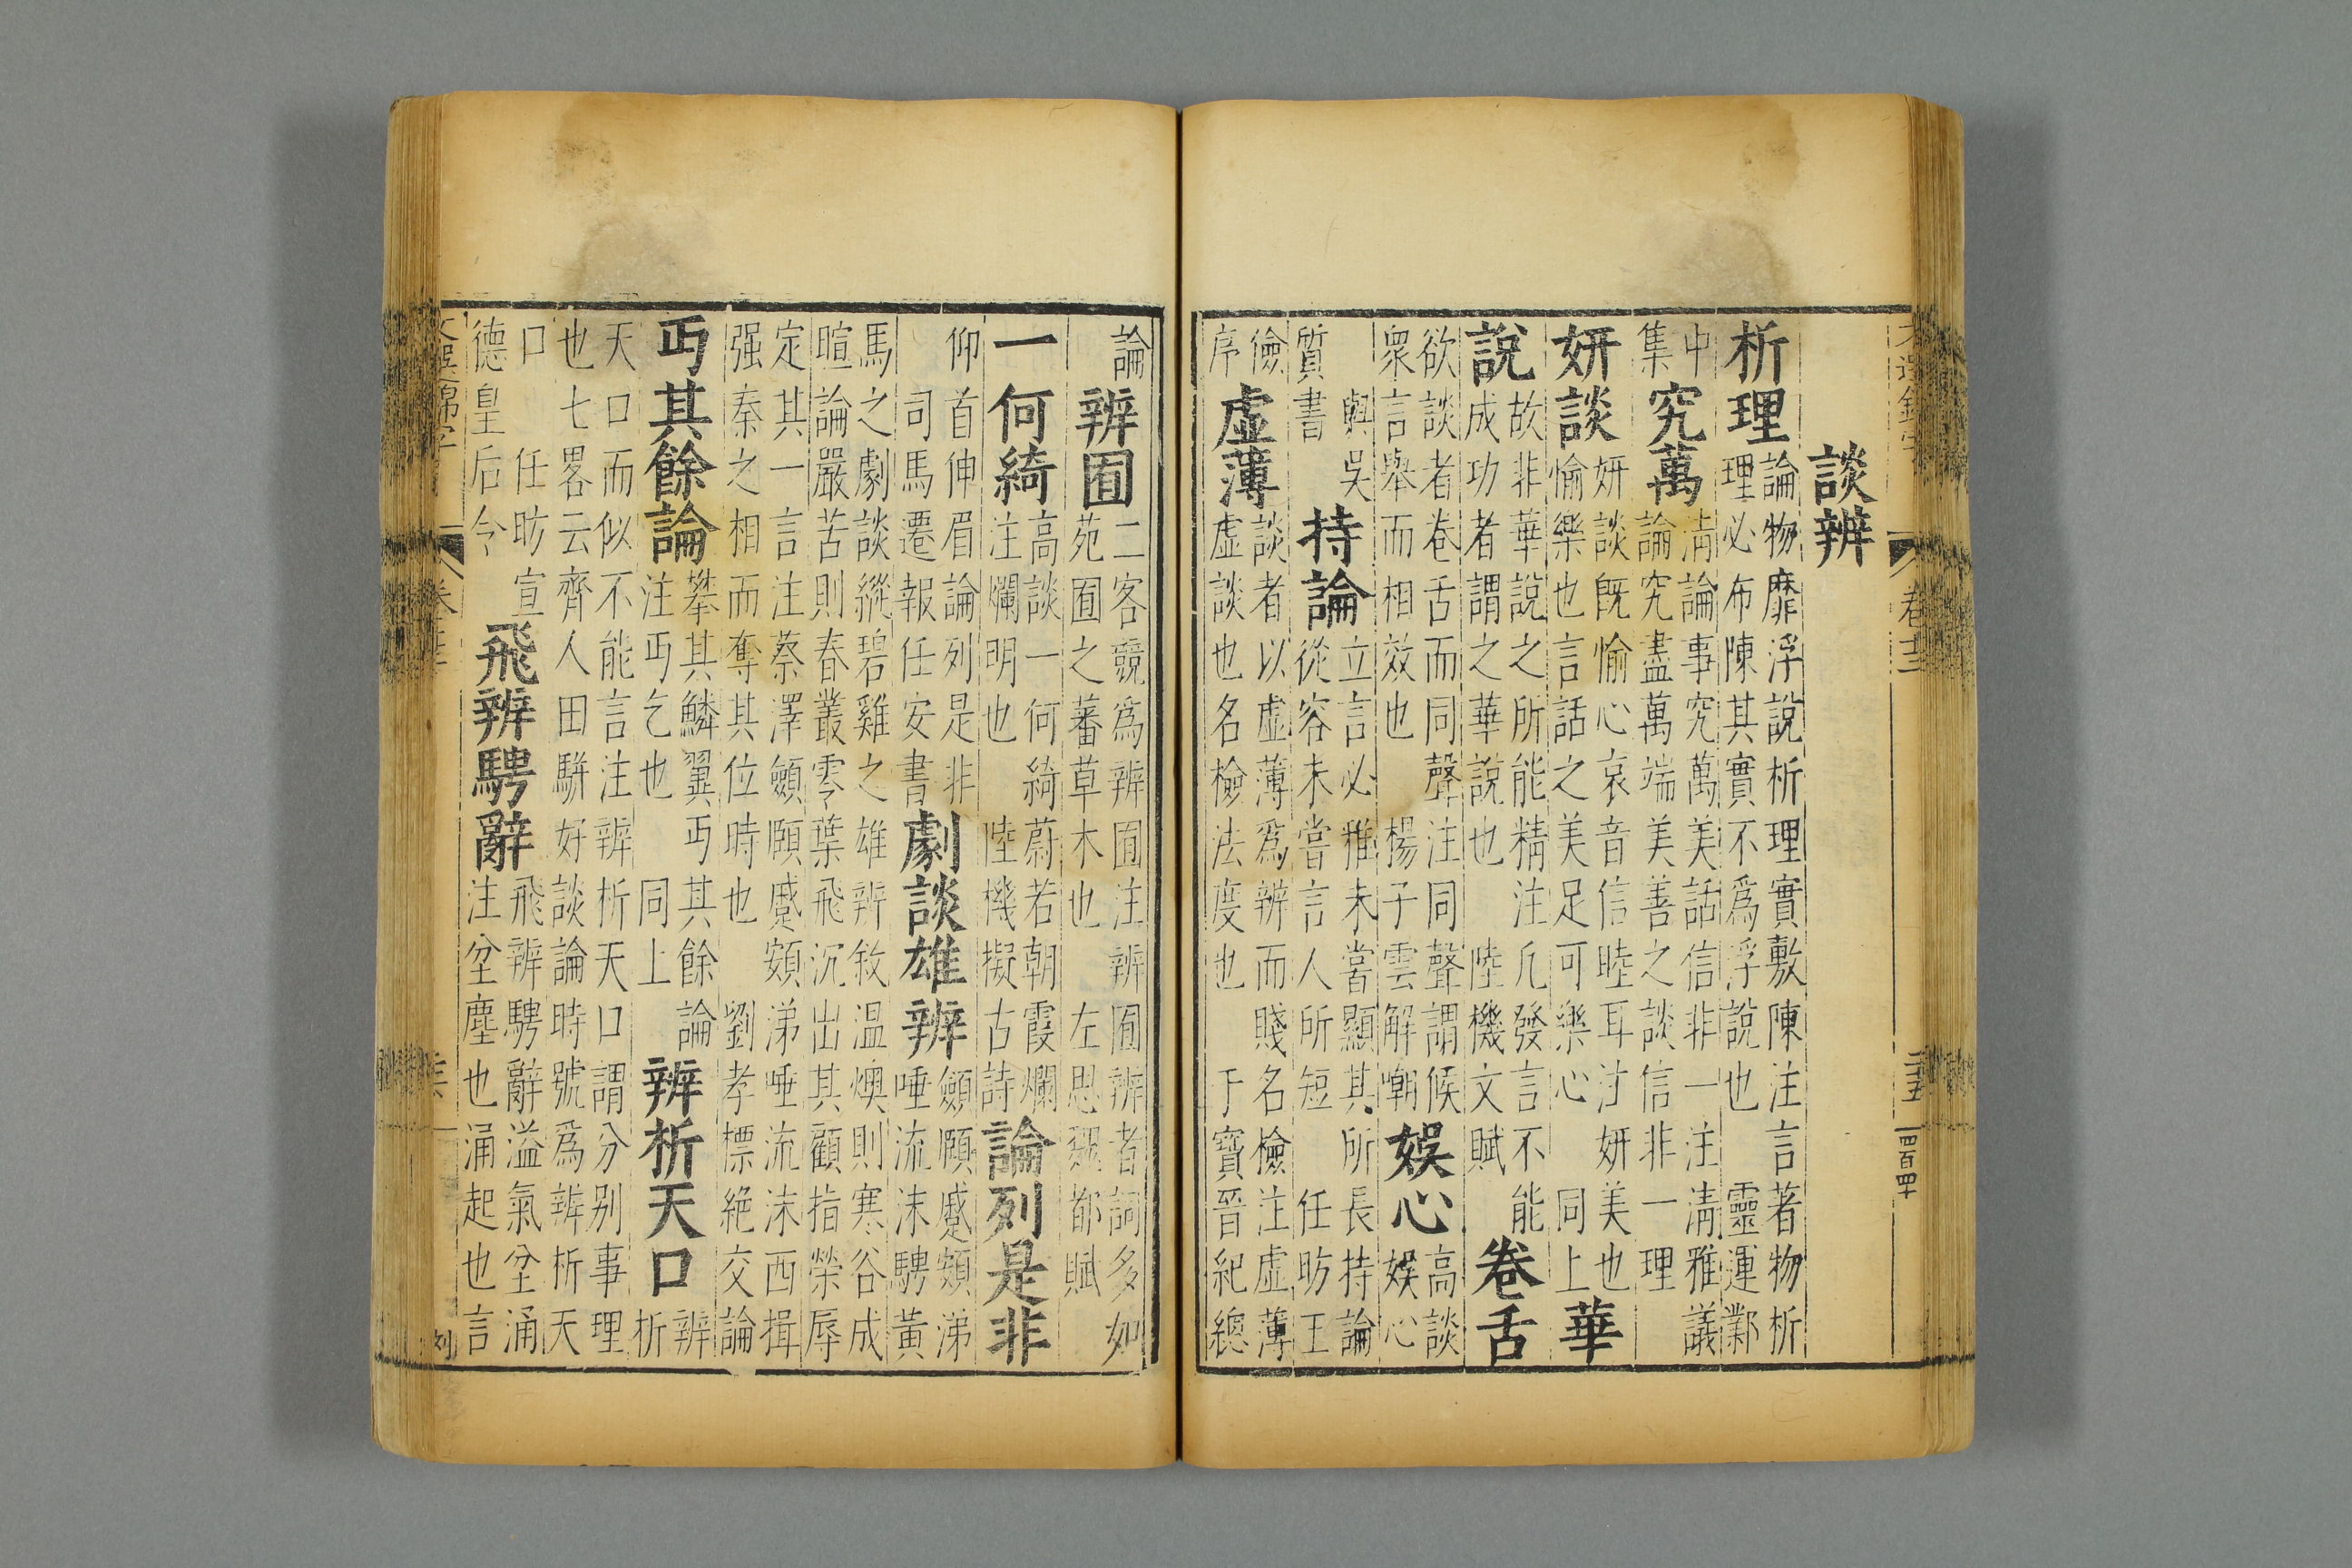 卷十三
二十五
四百四十
談辨
析理論物靡浮說析理實敷陳注言著物析
理必布陳其實不爲浮說也 靈運鄴
中
集 究萬清論事究萬美話信非一注清雅議
論究盡萬端美善之談信非一理
妍談妍談既愉心哀音信睦耳注妍美也
愉樂也言話之美足可樂心 同上 華
說故非華說之所能精注凡發言不能
成功者謂之華說也 陸機文賦 卷舌高談
欲談者卷舌而同聲注同聲謂候
衆言舉而相效也 楊子雲解嘲 娛心娛心
與吳
質書 持論立言必雅未嘗顯其所長持論
從容未嘗言人所短 任昉王
儉
序 虛薄談者以虛薄爲辨而賤名檢注虛薄
虛談也名檢法度也 于寶晉紀總
論 辨囿二客競爲辨囿注辨囿辨者詞多如
苑囿之蕃草木也 左思魏都賦
一何綺高談一何綺蔚若朝霞爛
注爛明也 陸機擬古詩 論列是非
仰首伸眉論列是非
司馬遷報任安書 劇談雄辨顩頤蹙頞涕
唾流沫騁黃
馬之劇談縱碧雞之雄辨敘温燠則寒谷成
暄論嚴苦則春叢零葉飛沉出其顧指榮辱
定其一言注蔡澤顩頤蹙頞涕唾流沫西揖
强秦之相而奪其位時也 劉孝標絶交論
丐其餘論攀其鱗翼丐其餘論
注丐乞也 同上 辨析天口辨
析
天口而似不能言注辨析天口謂分別事理
也七畧云齊人田駢好談論時號爲辨析天
口 任昉宣
德皇后令 飛辨騁辭飛辨騁辭溢氣坌涌
注坌塵也涌起也言